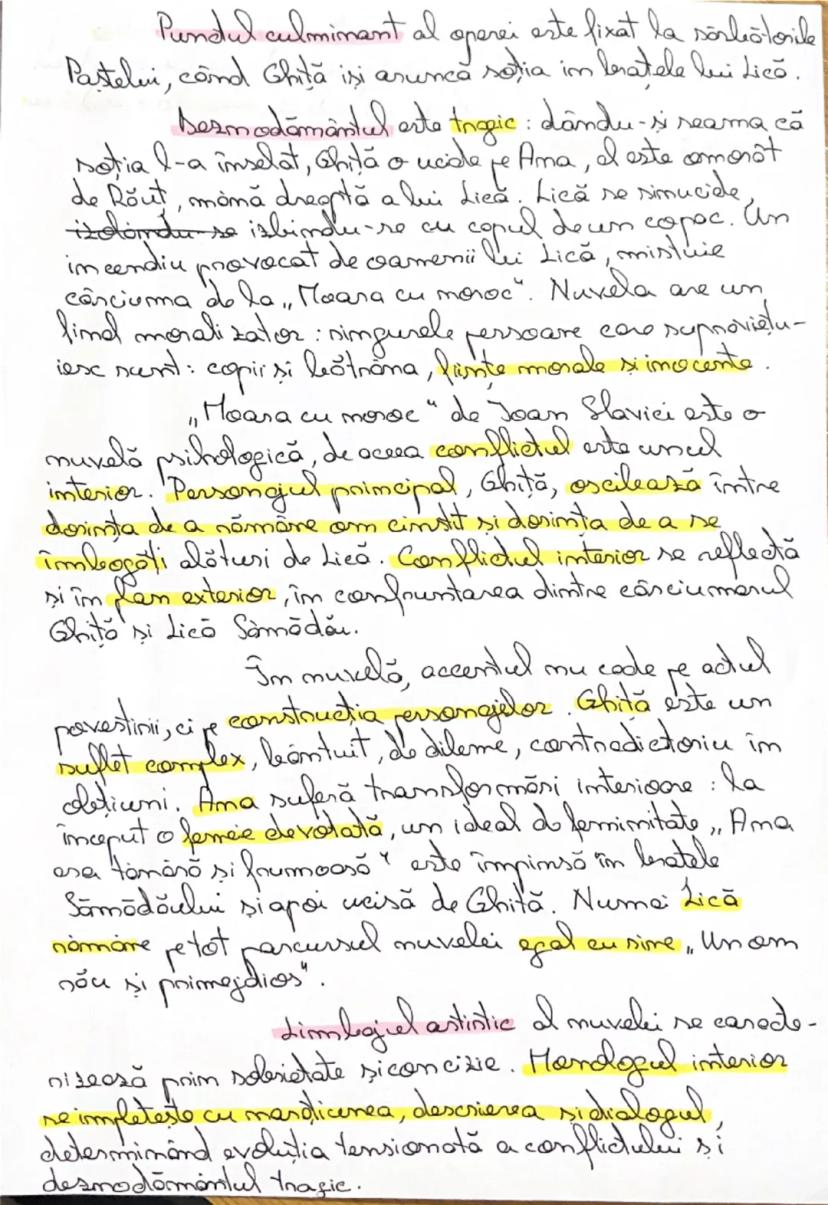 Punctul culminant al operei este fixat la sărbătorile
Paștelui, când Ghiță își aruncă soția în brațele lui Lică.
Deznodământul este tragic: dându-și seama că
soția l-a înșelat, Ghiță o ucide pe Ana, el este omorât
de Răuț, mână dreaptă a lui Lică. Lică se sinucide,
izolându-se izbindu-se cu capul de un copac. Un
incendiu provocat de oamenii lui Lică, mistuie
cârciuma de la „Moara cu noroc". Nuvela are un
final moralizator: singurele persoane care supraviețu-
iesc sunt: copii și bătrâna, ființe morale și inocente.
„Moara cu noroc" de Ioan Slavici este o
nuvelă psihologică, de aceea conflictul este unul
interior. Personajul principal, Ghiță, oscilează între
dorința de a rămâne om cinstit și dorința de a se
îmbogăți alături de Lică. Conflictul interior se reflectă
și în plan exterior, în confruntarea dintre cârciumarul
Ghiță și Lică Sămădău.
În nuvelă, accentul nu cade pe actul
povestirii, ci pe construcția personajelor. Ghiță este un
suflet complex, bântuit, de dileme, contradictoriu în
acțiuni. Ana suferă transformări interioare: la
început o femeie devotată, un ideal de feminitate „Ana
era tânără și frumoasă" este împinsă în brațele
Sămădăului și apoi ucisă de Ghiță. Numai Lică
rămâne pe tot parcursul nuvelei egal cu sine „Un om
rău și primejdios".
Limbajul artistic al nuvelei se caracte-
rizează prin sobrietate și concizie. Monologul interior
se împletește cu narațiunea, descrierea și dialogul,
determinând evoluția tensionată a conflictului și
deznodământul tragic.